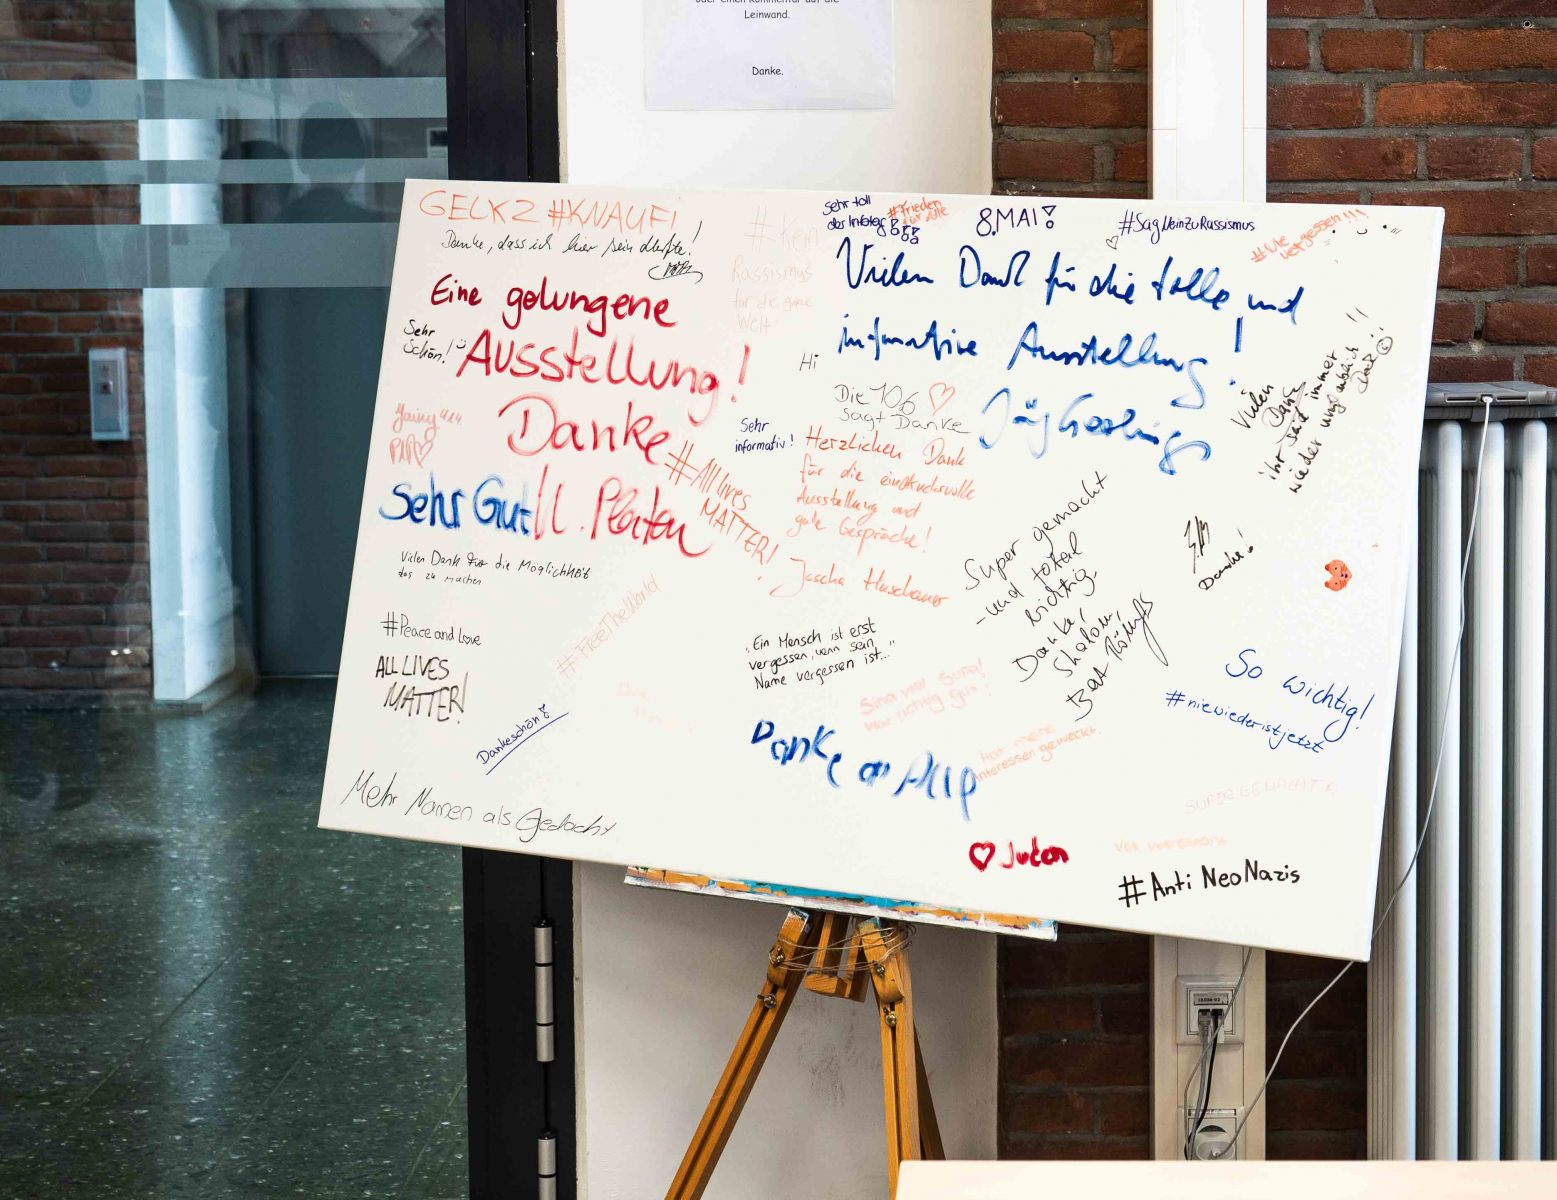 oder einen Kommentar auf die
Leinwand.
Danke.
GELKZ #KNAUFI
Danke, dass ich hier sein durfte!
Eine gelungene
Ausstellung!
Danke
Sehr
Schön!
Sehr Gut!
#All lives
MATTER!
Vielen Dank für die Möglichkeit
das zu machen
#Peace and Love
ALL LIVES
MATTER!
#FreeTheWorld
Dankeschön!
Mehr Namen als Gedacht
#Kein
Rassismus
für die ganze
Welt
Sehr toll
der Infotag
#Frieden
für Alle
8.MAI!
#SagNeinZuRassismus
#Nie
vergessen!!!
Vielen Dank für die tolle und
informative Ausstellung!
Hi
Die 10.6
sagt Danke
Sehr
informativ!
Herzlichen Dank
für die eindrucksvolle
Ausstellung und
gute Gespräche!
Vielen
Danke
ihr seid immer
wieder
Super gemacht
- und total
wichtig
Danke!
Shalom,
Danke!
„Ein Mensch ist erst
vergessen, wenn sein
Name vergessen ist..."
Sina war super!
War richtig gut!
Hat meine
Interessen geweckt.
Danke an Alle
So wichtig!
#niewiederistjetzt
SUPER GEMACHT
♡ Juden
#Anti NeoNazis